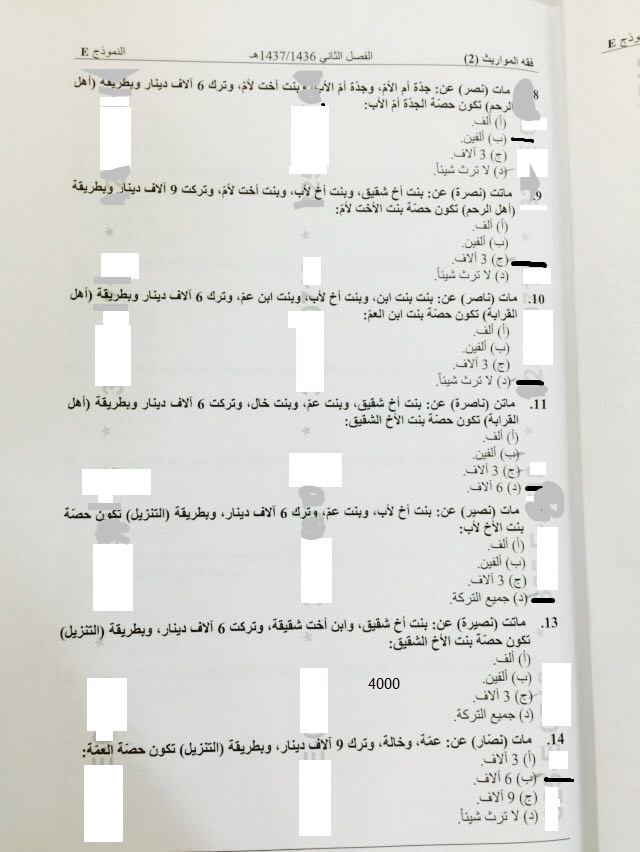 فقه المواريث (2) الفصل الثاني 1437/1436هـ النموذج E
8 مات (نصر) عن: جدّة أم الأمّ، وجدّة أمّ الأب، وبنت أخت لأمّ، وترك 6 آلاف دينار وبطريقة (أهل
الرحم) تكون حصّة الجدّة أمّ الأب:
(أ) ألف.
(ب) ألفين.
(ج) 3 آلاف.
(د) لا ترث شيئاً.
9. ماتت (نصرة) عن: بنت أخ شقيق، وبنت أخ لأب، وبنت أخت لأمّ، وتركت 9 آلاف دينار وبطريقة
(أهل الرحم) تكون حصّة بنت الأخت لأمّ:
(أ) ألف.
(ب) ألفين.
(ج) 3 آلاف.
(د) لا ترث شيئاً.
10. مات (ناصر) عن: بنت بنت ابن، وبنت أخ لأب، وبنت ابن عمّ، وترك 6 آلاف دينار وبطريقة (أهل
القرابة) تكون حصّة بنت ابن العمّ:
(أ) ألف.
(ب) ألفين.
(ج) 3 آلاف.
(د) لا ترث شيئاً.
11. ماتن (ناصرة) عن: بنت أخ شقيق، وبنت عمّ، وبنت خال، وتركت 6 آلاف دينار وبطريقة (أهل
القرابة) تكون حصّة بنت الأخ الشقيق:
(أ) ألف.
(ب) ألفين.
(ج) 3 آلاف.
(د) 6 آلاف.
مات (نصير) عن: بنت أخ لأب، وبنت عمّ، وترك 6 آلاف دينار، وبطريقة (التنزيل) تكون حصّة
بنت الأخ لأب:
(أ) ألف.
(ب) ألفين.
(ج) 3 آلاف.
(د) جميع التركة.
13. ماتت (نصيرة) عن: بنت أخ شقيق، وابن أخت شقيقة، وتركت 6 آلاف دينار، وبطريقة (التنزيل)
تكون حصّة بنت الأخ الشقيق:
(أ) ألف.
(ب) ألفين.
4000
(ج) 3 آلاف.
(د) جميع التركة.
14. مات (نصّار) عن: عمّة، وخالة، وترك 9 آلاف دينار، وبطريقة (التنزيل) تكون حصّة العمّة:
(أ) 3 آلاف.
(ب) 6 آلاف.
(ج) 9 آلاف.
(د) لا ترث شيئاً.